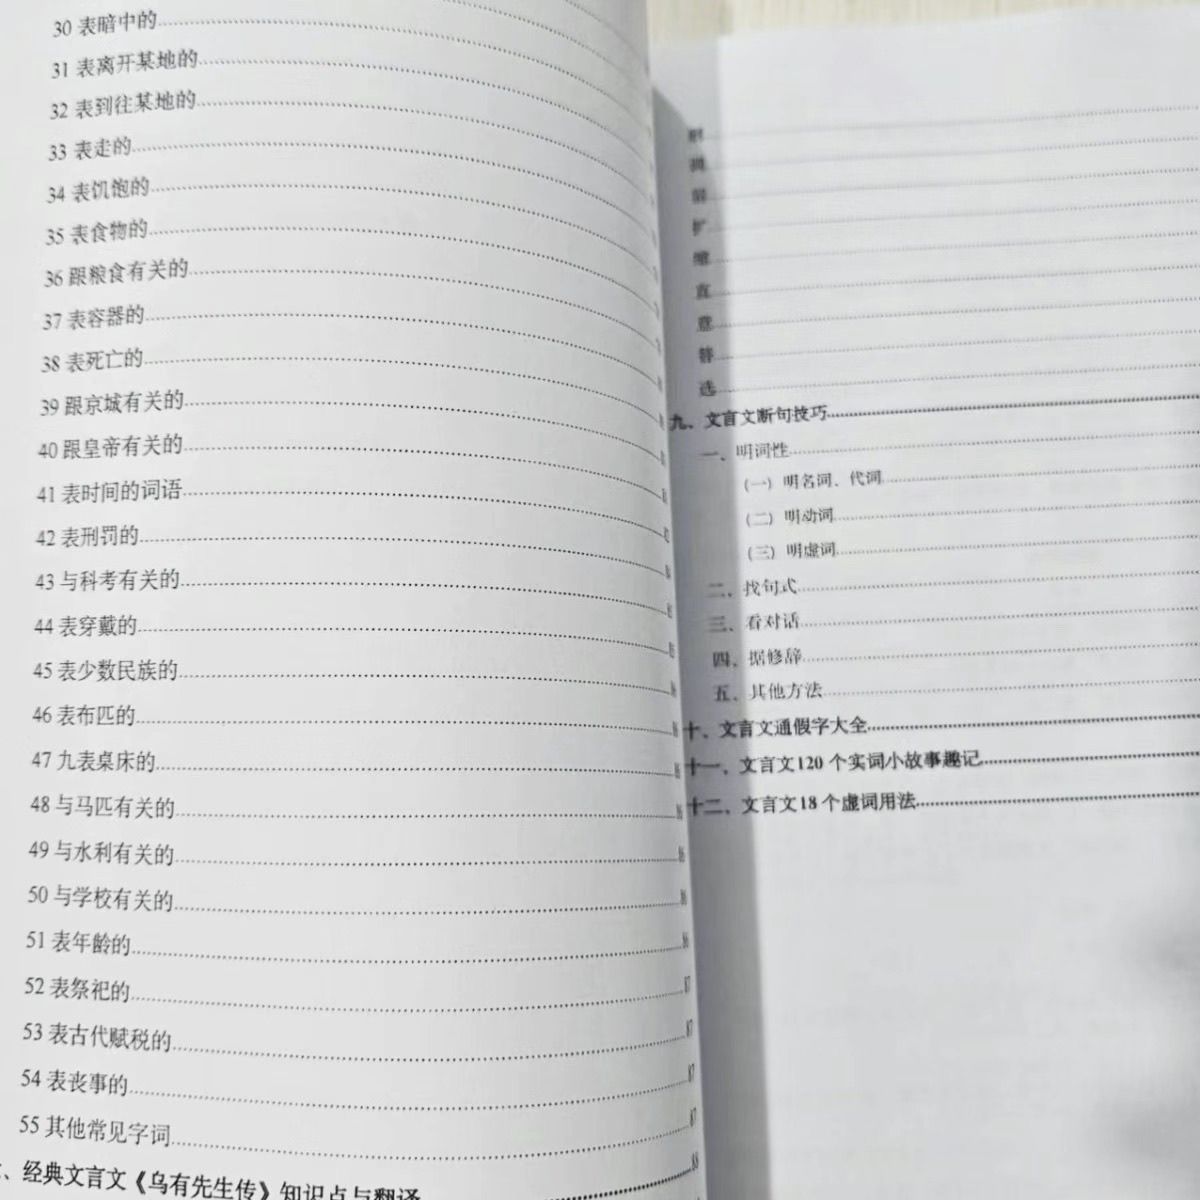 30 表暗中的
31 表离开某地的
32 表到往某地的
33 表走的
34 表饥饱的
35 表食物的
36 跟粮食有关的
37 表容器的
38 表死亡的
39 跟京城有关的
40 跟皇帝有关的
41 表时间的词语
42 表刑罚的
43 与科考有关的
44 表穿戴的
45 表少数民族的
46 表布匹的
47 九表桌床的
48 与马匹有关的
49 与水利有关的
50 与学校有关的
51 表年龄的 86
52 表祭祀的 87
53 表古代赋税的 87
54 表丧事的 87
55 其他常见字词 87
、经典文言文《乌有先生传》知识点与翻译 88
扩
缩
直
意
替
选
九、文言文断句技巧
一、明词性
（一）明名词、代词
（二）明动词
（三）明虚词
二、找句式
三、看对话
四、据修辞
五、其他方法
十、文言文通假字大全
十一、文言文120 个实词小故事趣记
十二、文言文18 个虚词用法